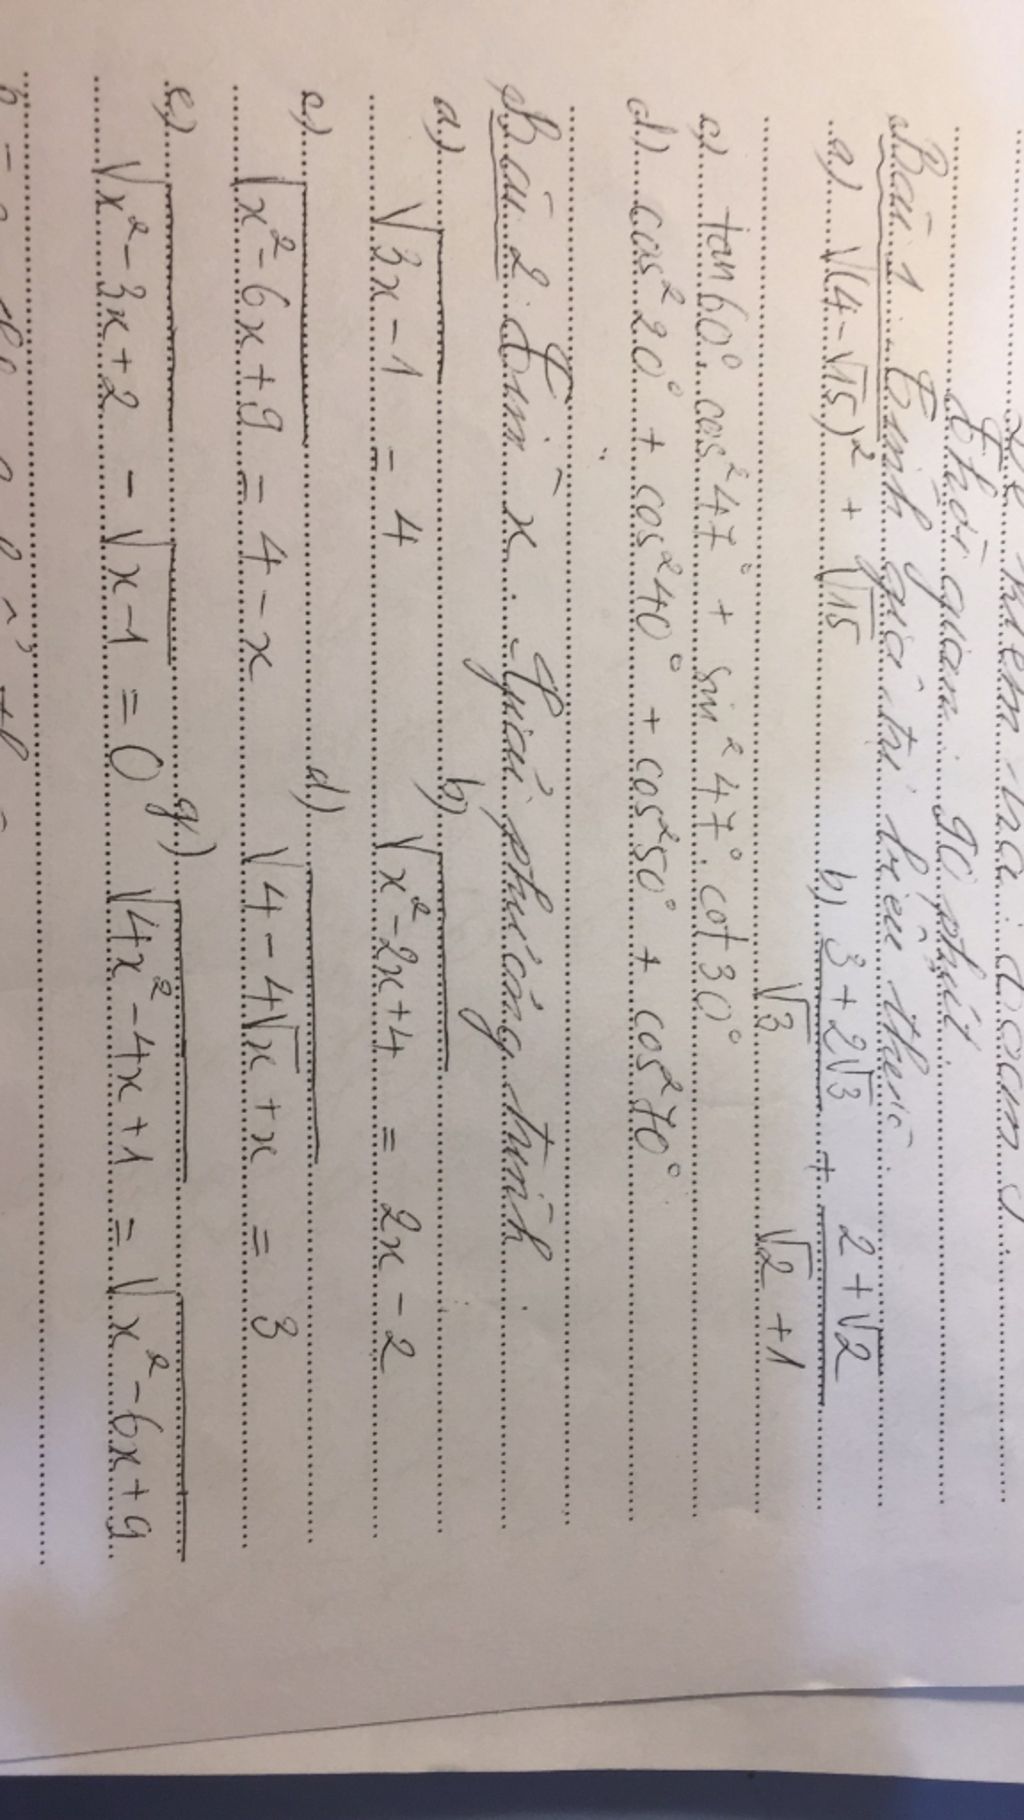 Thời gian: 90 phút.
Bài 1. Tính giá trị biểu thức.
a) √(4-√15)² + √15 b) (3+2√3)/√3 + (2+√2)/(√2+1)
c) tan60°.cos²47° + sin²47°.cot30°
d) cos²20° + cos²40° + cos²50° + cos²70°
Bài 2. Tìm x. Giải phương trình.
a) √(3x-1) = 4 b) √(x²-2x+4) = 2x-2
c) √(x²-6x+9) = 4-x d) √(4-4√x+x) = 3
e) √(x²-3x+2) - √(x-1) = 0 g) √(4x²-4x+1) = √(x²-6x+9)